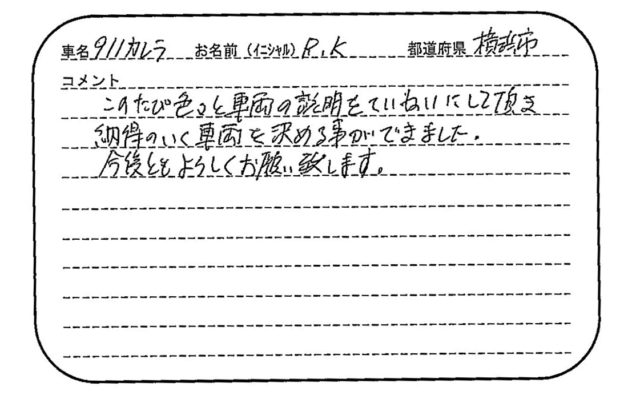 車名 911カレラ お名前（イニシャル） R.K 都道府県 横浜市
コメント
このたび色々と車両の説明をていねいにして頂き
納得のいく車両を決める事ができました。
今後ともよろしくお願い致します。